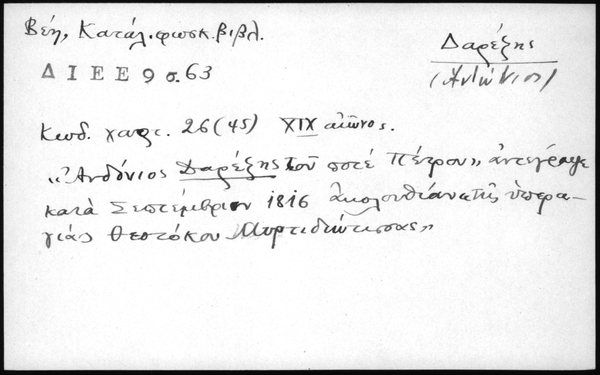 Βέη, Κατάλ. φωσκ. βιβλ.
Δαρέζης
(Ἀντώνιος)
ΔΙΕΕ 9 σ. 63
Κωδ. χαρτ. 26 (45) XIX αἰῶνος.
"Ἀνδόνιος Δαρέζης τοῦ ποτέ Πέτρου" ἀντέγραψε
κατὰ Σεπτέμβριον 1816 ἀκολουθίαν "τῆς ὑπερα-
γιάς Θεοτόκου Μυρτιδιώτισσας"